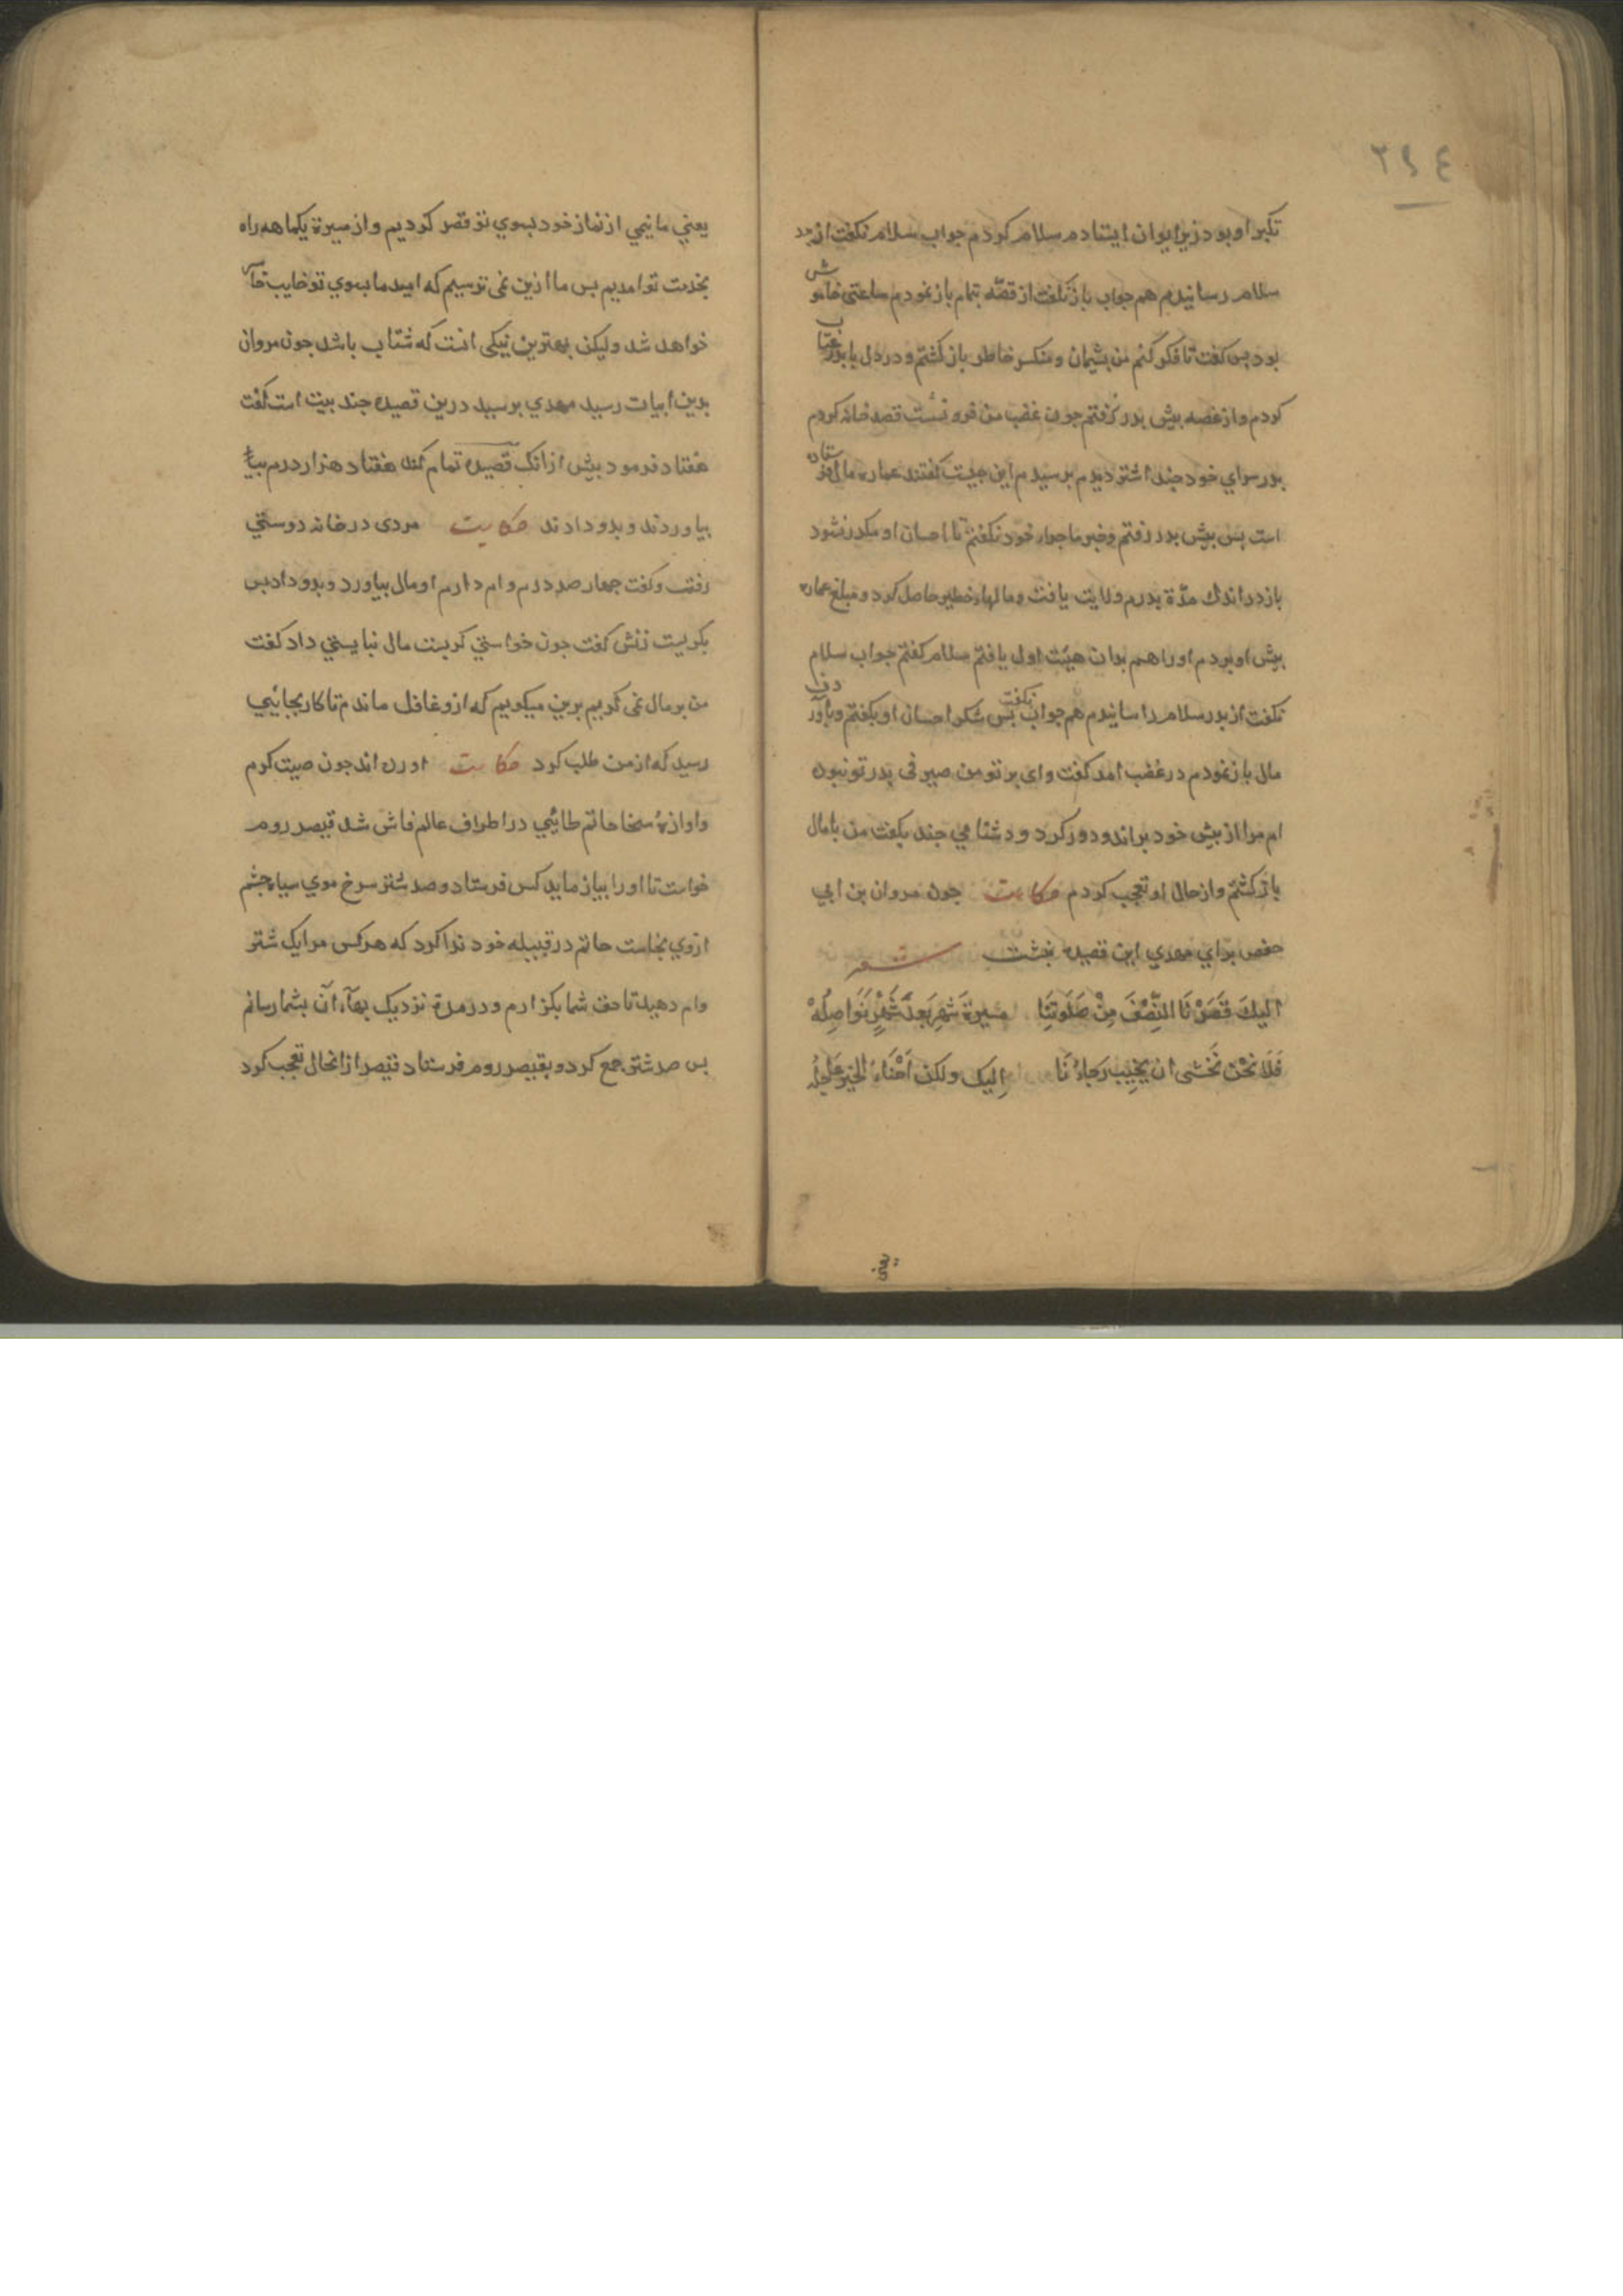 ٢٩٤
تكبر او بود زير ايوان ايستادم سلام كردم جواب سلام نكفت از بدر
سلام رسانيدم هم جواب باز نكفت از قصّه تمام باز نمودم ساعتى خاموش
بود بس كفت تا فكر كنم من بشيمان و منكسر خاطر باز كشتم و در دل با بدر عتاب
كردم و از غصه بيش بدر نرفتم جون غضب من فرو نشست قصد خانه كردم
بدر سراي خود جند اشتر ديدم برسيدم اين جيست كفتند عماره مال فرستاده
است بس بيش بدر رفتم و خبر ماجراء خود نكفتم تا احسان او مكدر نشود
باز در اندك مدّة بدرم ولايت يافت و مالهاء خطير حاصل كرد و مبلغ عماره
بيش او بردم او را هم بدان هيئت اول يافتم سلام كفتم جواب سلام
نكفت از بدر سلام رسانيدم هم جواب نكفت بس شكر احسان او بكفتم و باوردن
مال باز نمودم در غضب امد كفت واى بر تو من صيرفى بدر تو نبوده
ام مرا از بيش خود براند و دور كرد و دشنامي جند بكفت من با مال
باز كشتم و از حال او تعجب كردم حكايت جون مروان بن ابي
حفص براي مهدي اين قصيده نبشت شعر
اليكَ قَصَرْنَا النِّصْفَ مِنْ صَلَوتِنَا مسيرةَ شهرٍ بَعدَ شَهْرٍ نَوَاصِلُهْ
فَلَا نَحْنُ نَخْشى ان يَخِيبَ رَجَاؤُنَا اِليك ولكن اَهْنَاءُ الخيرِ عَاجِلُه
يعني ما نيمي از نماز خود بسوي تو قصر كرديم و از مسيرة يكماهه راه
بخدمت تو امديم بس ما ازين نمى ترسيم كه اميد ما بسوي تو خايب خاسر
خواهد شد وليكن بهترين نيكى انست كه شتاب باشد جون مروان
بدين ابيات رسيد مهدي برسيد درين قصيده جند بيت است كفت
هفتاد فرمود بيش از انك قصيده تمام كند هفتاد هزار درم
بياوردند و بدو دادند حكايت مردى در خانه دوستي
رفت و كفت جهار صد درم وام دارم او مال بياورد و بدو داد بس
بكريست زنش كفت جون خواستي كريست مال نبايستي داد كفت
من بر مال نمى كريم برين ميكويم كه ازو غافل ماندم تا كار بجائيي
رسيد كه از من طلب كرد حكايت اورده اند جون صيت كرم
و اوازهٔ سخا حاتم طائيي در اطراف عالم فاش شد قيصر روم
خواست تا او را بيازمايد كس فرستاد و صد شتر سرخ موي سياه جشم
ازوي بخاست حاتم در قبيله خود ندا كرد كه هر كس مرا يك شتر
وام دهيد تا حق شما بكزارم و در مدة نزديك بهآء آن بشما رسانم
بس صد شتر جمع كرد و بقيصر روم فرستاد قيصر از انحال تعجب كرد